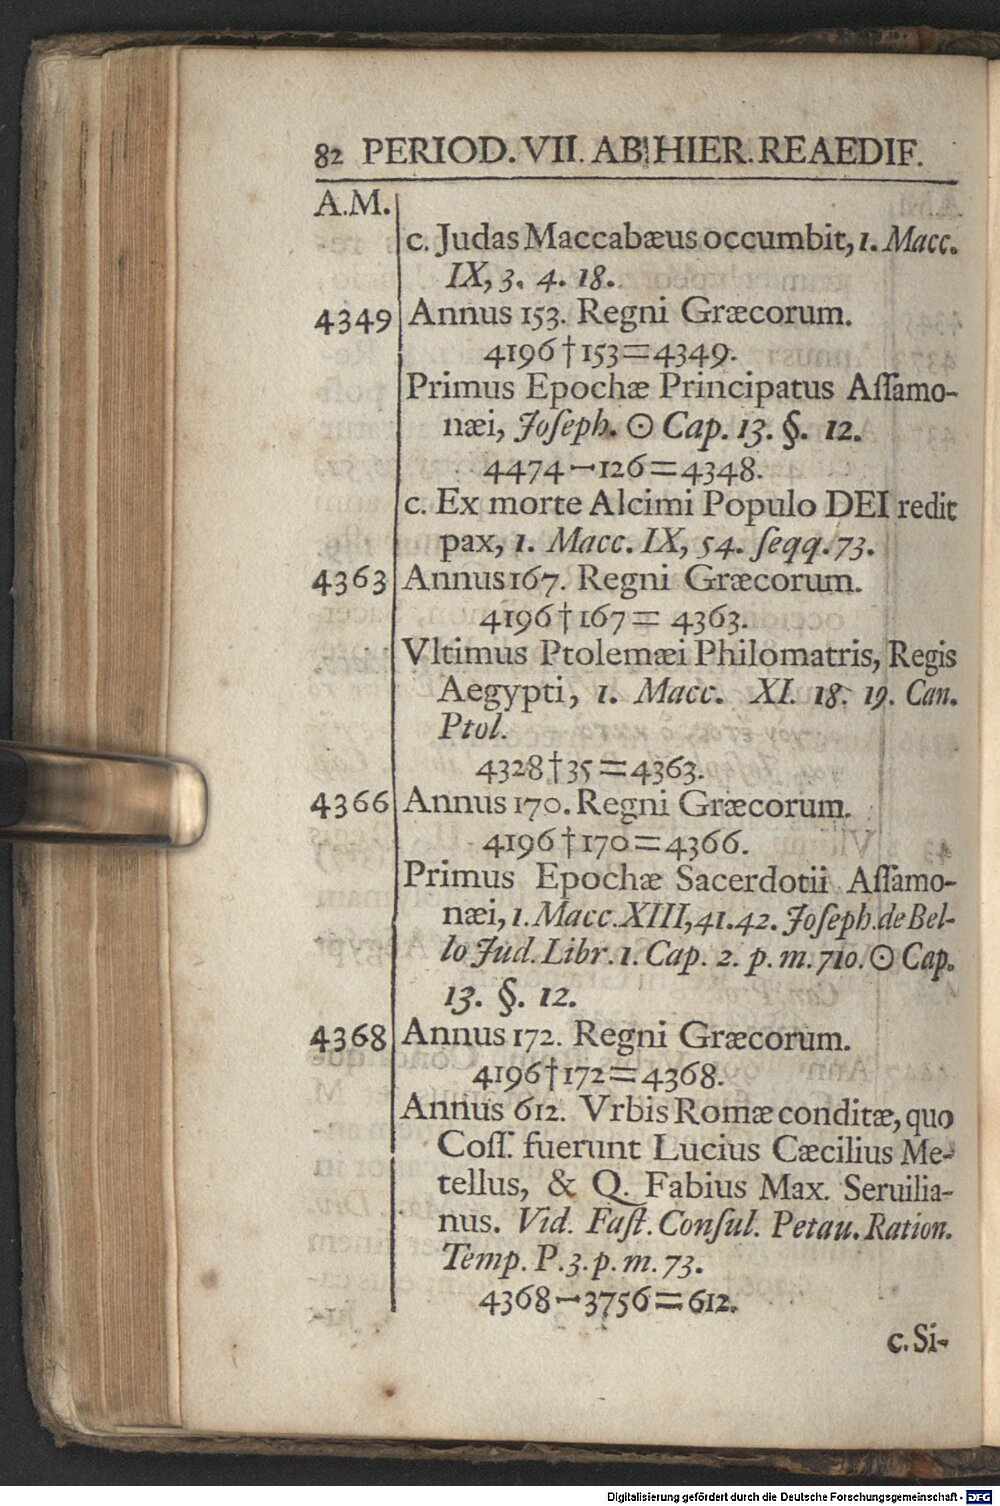 82 PERIOD. VII. AB HIER. REAEDIF.
A.M.
c. Judas Maccabæus occumbit, 1. Macc.
IX, 3. 4. 18.
4349 Annus 153. Regni Græcorum.
4196†153=4349.
Primus Epochæ Principatus Aſſamo-
næi, Joſeph. ☉ Cap. 13. §. 12.
4474-126=4348.
c. Ex morte Alcimi Populo DEI redit
pax, 1. Macc. IX, 54. ſeqq. 73.
4363 Annus 167. Regni Græcorum.
4196†167= 4363.
Vltimus Ptolemæi Philomatris, Regis
Aegypti, 1. Macc. XI. 18. 19. Can.
Ptol.
4328†35=4363.
4366 Annus 170. Regni Græcorum.
4196†170=4366.
Primus Epochæ Sacerdotii Aſſamo-
næi, 1. Macc. XIII, 41. 42. Joſeph. de Bel-
lo Jud. Libr. 1. Cap. 2. p. m. 710. ☉ Cap.
13. §. 12.
4368 Annus 172. Regni Græcorum.
4196†172=4368.
Annus 612. Vrbis Romæ conditæ, quo
Coſſ. fuerunt Lucius Cæcilius Me-
tellus, & Q. Fabius Max. Seruilia-
nus. Vid. Faſt. Conſul. Petau. Ration.
Temp. P. 3. p. m. 73.
4368-3756=612.
c. Si-
Digitalisierung gefördert durch die Deutsche Forschungsgemeinschaft - DFG